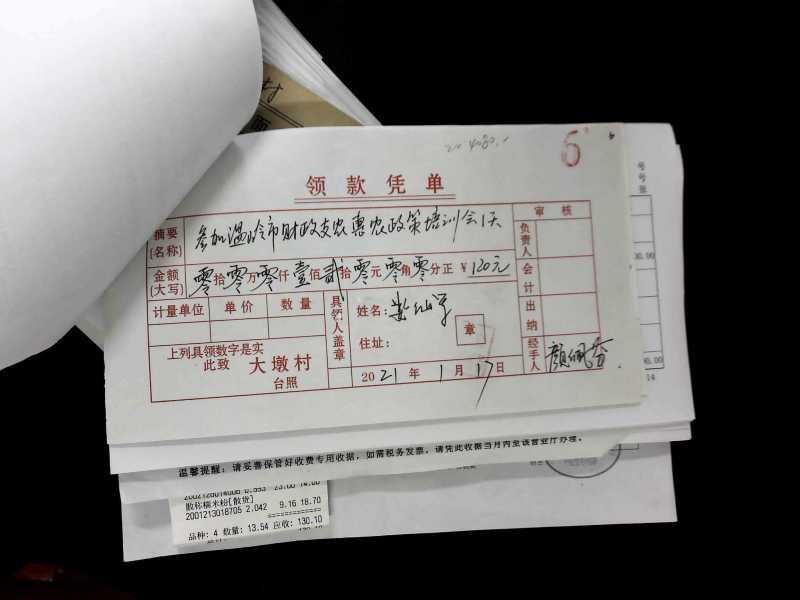 6
领款凭单
摘要(名称) 参加温岭市财政支农惠农政策培训会1天
审核
负责人
金额(大写) 零拾零万零仟壹佰贰拾零元零角零分正 ¥120元
会计
计量单位 单价 数量
具领人盖章
姓名:
章
住址:
出纳
上列具领数字是实
此致 大墩村
台照
2021年1月17日
经手人 颜佩芬
号
号
30.00
00.00
14
温馨提醒:请妥善保管好收费专用收据,如需税务发票,请凭此收据当月内至该营业厅办理。
2002120014008 0.593 23.60 14.00
散称糯米粉[散货]
2001213018705 2.042 9.16 18.70
品种: 4 数量: 13.54 应收: 130.10